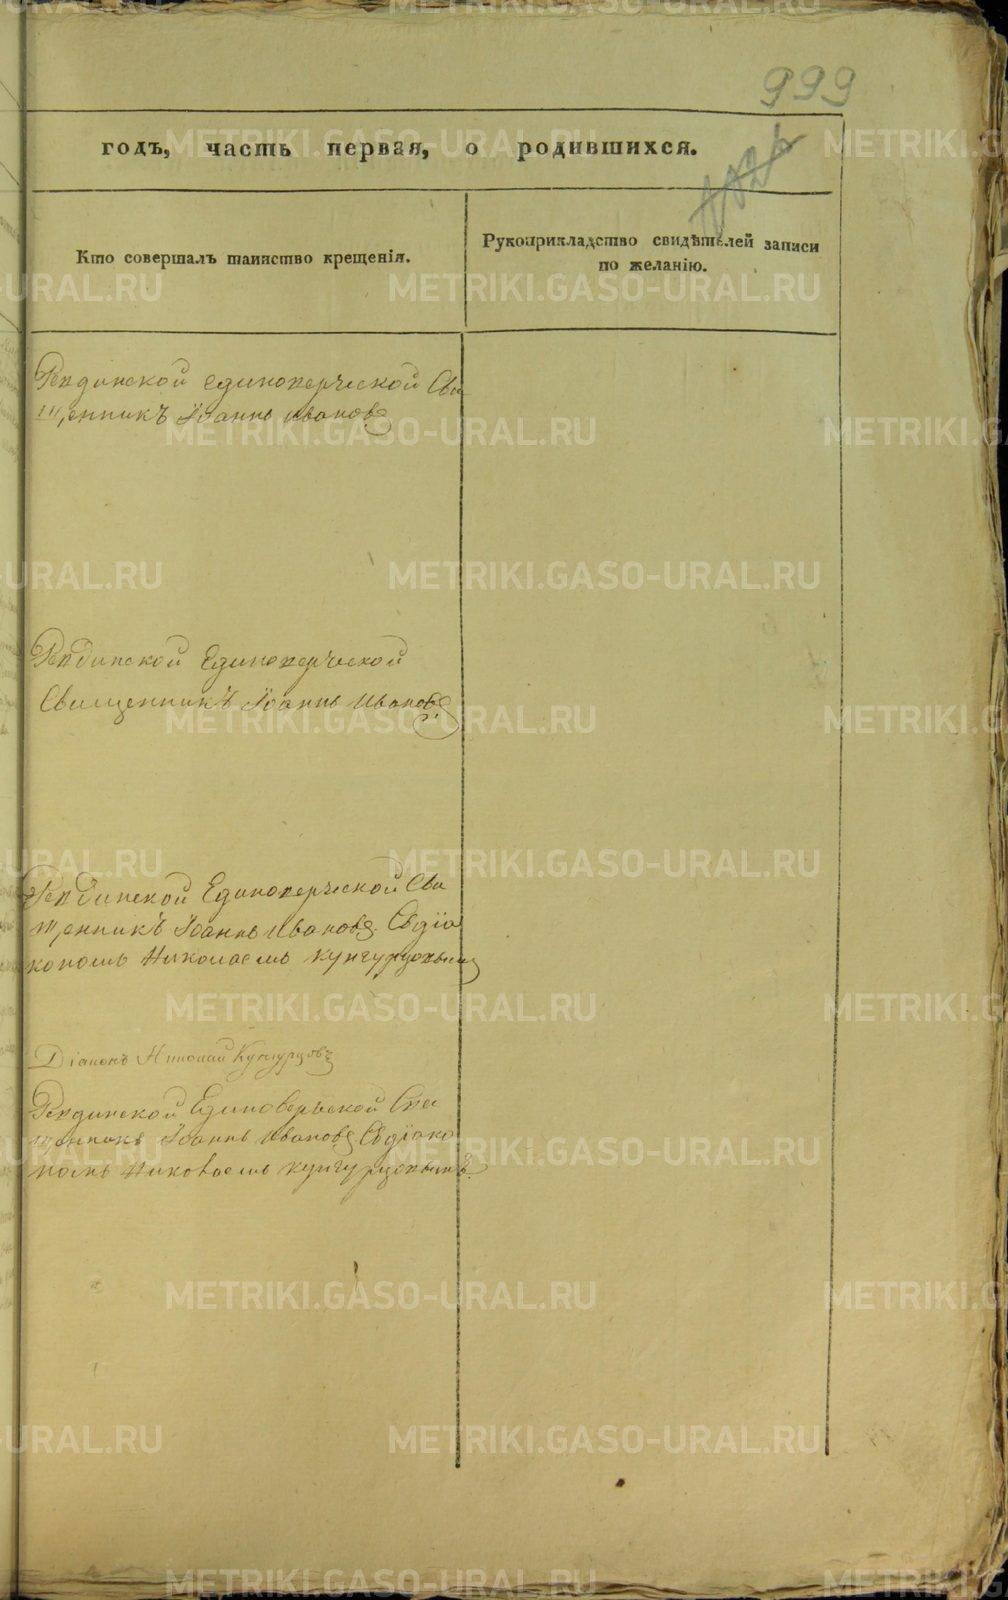 999
годъ, часть первая, о родившихся.
Кто совершалъ таинство крещенія.
Рукоприкладство свидѣтелей записи
по желанію.
Ревдинской единоверческой Свя
щенникъ Іоаннъ Ивановъ
Ревдинской Единоверческой
Священникъ Іоаннъ Ивановъ
Ревдинской Единоверческой Свя
щенникъ Іоаннъ Ивановъ Съдіа
кономъ Николаемъ Кунгурцовымъ
Діаконъ Николай Кунгурцовъ
Ревдинской Единоверческой Свя
щенникъ Іоаннъ Ивановъ Съдіако
номъ Николаемъ Кунгурцовымъ.
METRIKI.GASO-URAL.RU